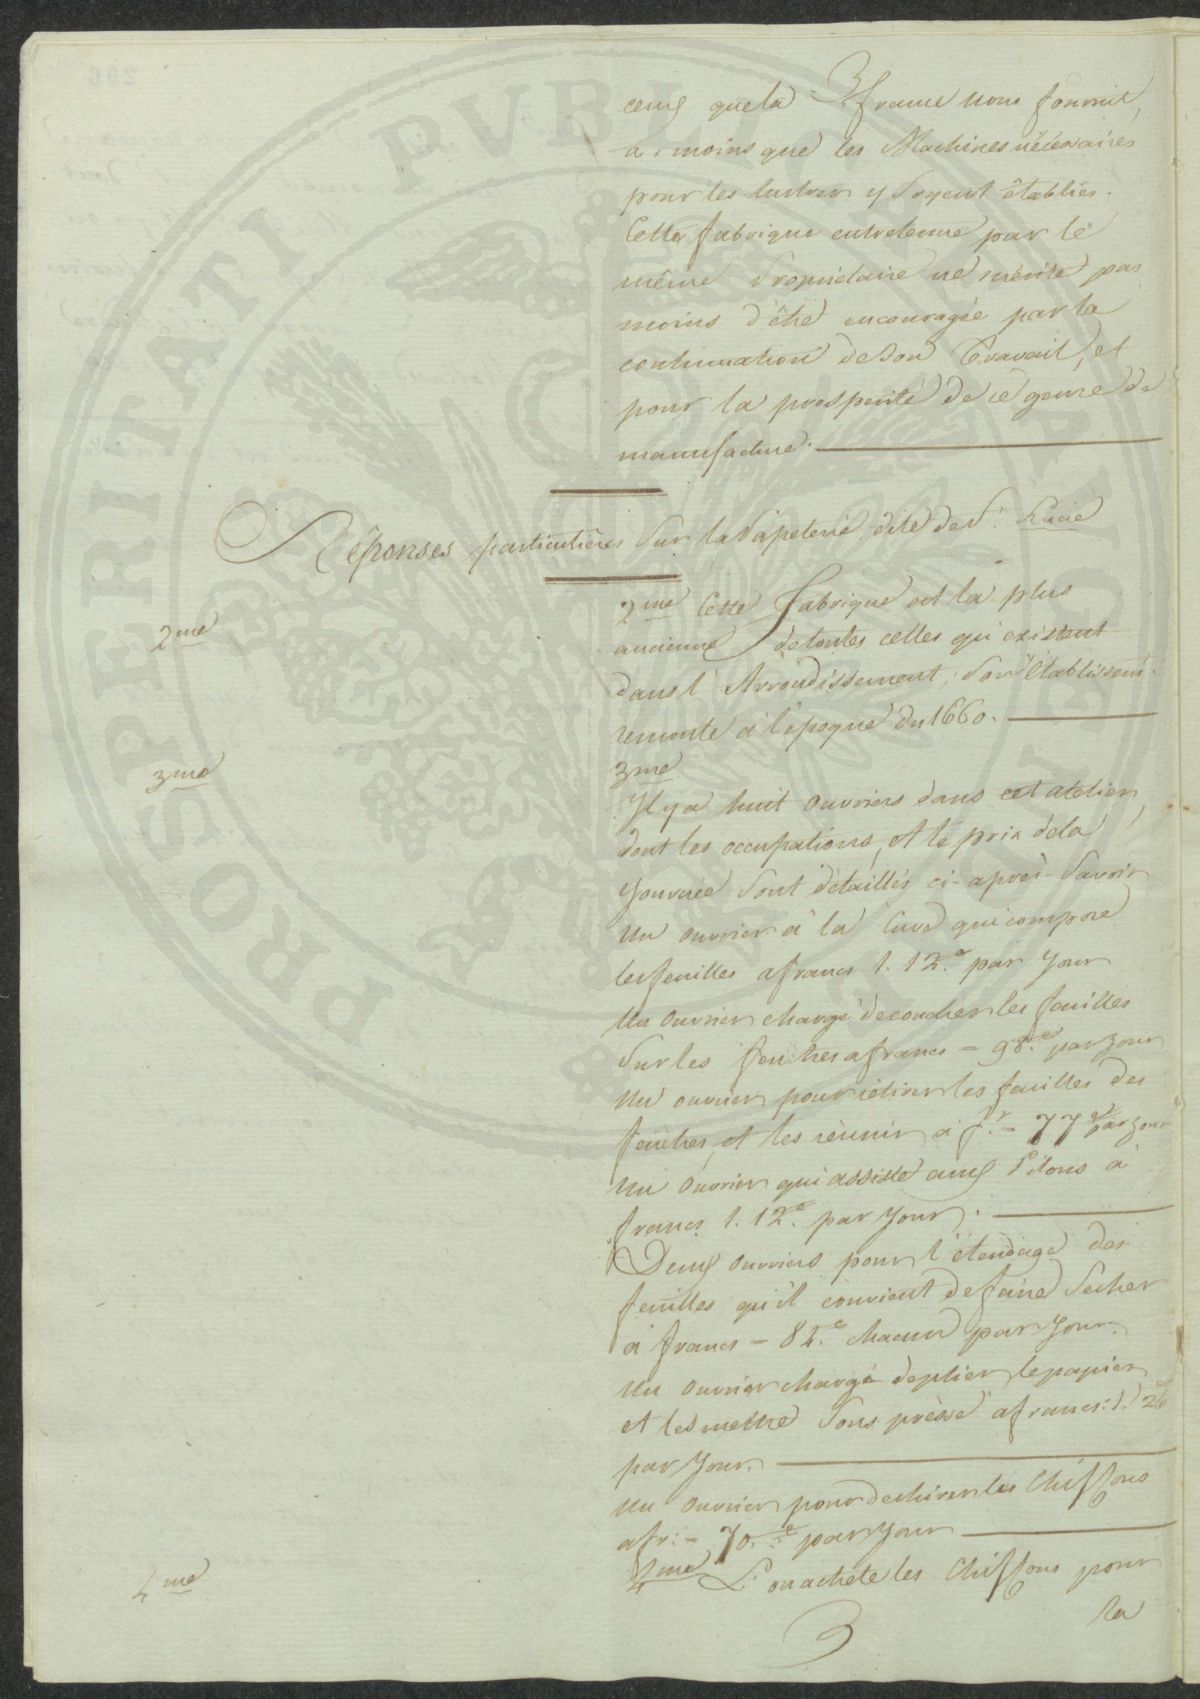 ceux que la france nous fournit,
a moins que les Machines nécessaires
pour les lustrer y soyent établies.
Cette fabrique entretenue par le
même propriétaire ne mérite pas
moins d'être encouragée par la
continuation de son travail, et
pour la prosperité de ce genre de
manufacture.
Réponses particulières sur la Papeterie dite de St. Lucie
2me
2me Cette fabrique est la plus
ancienne de toutes celles qui existent
dans l'Arrondissement; son établissemt.
remonte à l'époque du 1660.
3me
3me
Il y a huit ouvriers dans cet atelier,
dont les occupations, et le prix de la
journée sont détaillés ci-après savoir
un ouvrier à la Cuve qui compose
les feuilles a francs 1. 12.c par jour
un ouvrier chargé de coucher les feuilles
sur les feuthes a francs = 98.c par jour
un ouvrier pour rétirer les feuilles des
feuthes, et les réunir à fr. = 77.c par jour
un ouvrier qui assiste aux Pilons à
francs 1. 12.c par jour.
Deux ouvriers pour l'étendage des
feuilles qu'il convient de faire sécher
à francs = 84.c chacun par jour.
un ouvrier chargé de plier le papier
et les mettre sous presse a francs: 1. 26
par jour.
un ouvrier pour dechirer les Chiffons
a fr: = 70.c par jour
4me
4me L'on achète les Chiffons pour
la
PROSPERITATI PUBLICAE